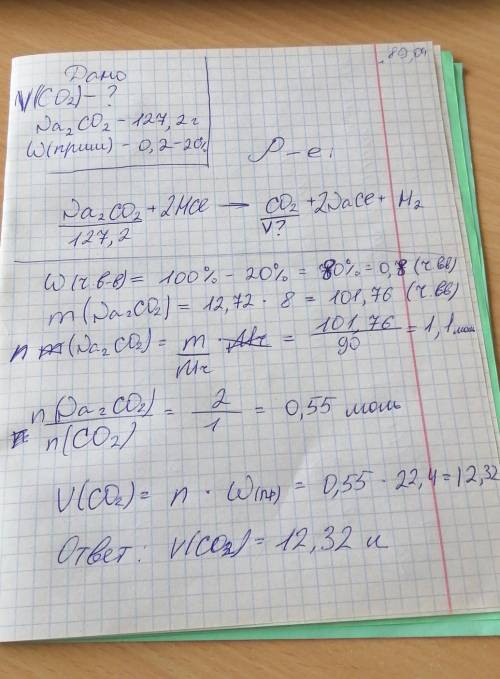 89,04
Дано
V(CO₂) – ?
Na₂CO₂ – 127,2 г
W(прим) – 0,2 – 20%
Р–е:
Na₂CO₂ + 2HCl — CO₂ + 2NaCl + H₂
127,2 V?
W(ч.в-в) = 100% – 20% = 80% = 0,8 (ч.вв)
m(Na₂CO₂) = 12,72 · 8 = 101,76 (ч.вв)
n (Na₂CO₂) = m/Mr = 101,76/90 = 1,1 моль
n(Na₂CO₂)/n(CO₂) = 2/1 = 0,55 моль
V(CO₂) = n · W(пр) = 0,55 · 22,4 = 12,32
Ответ: V(CO₂) = 12,32 л